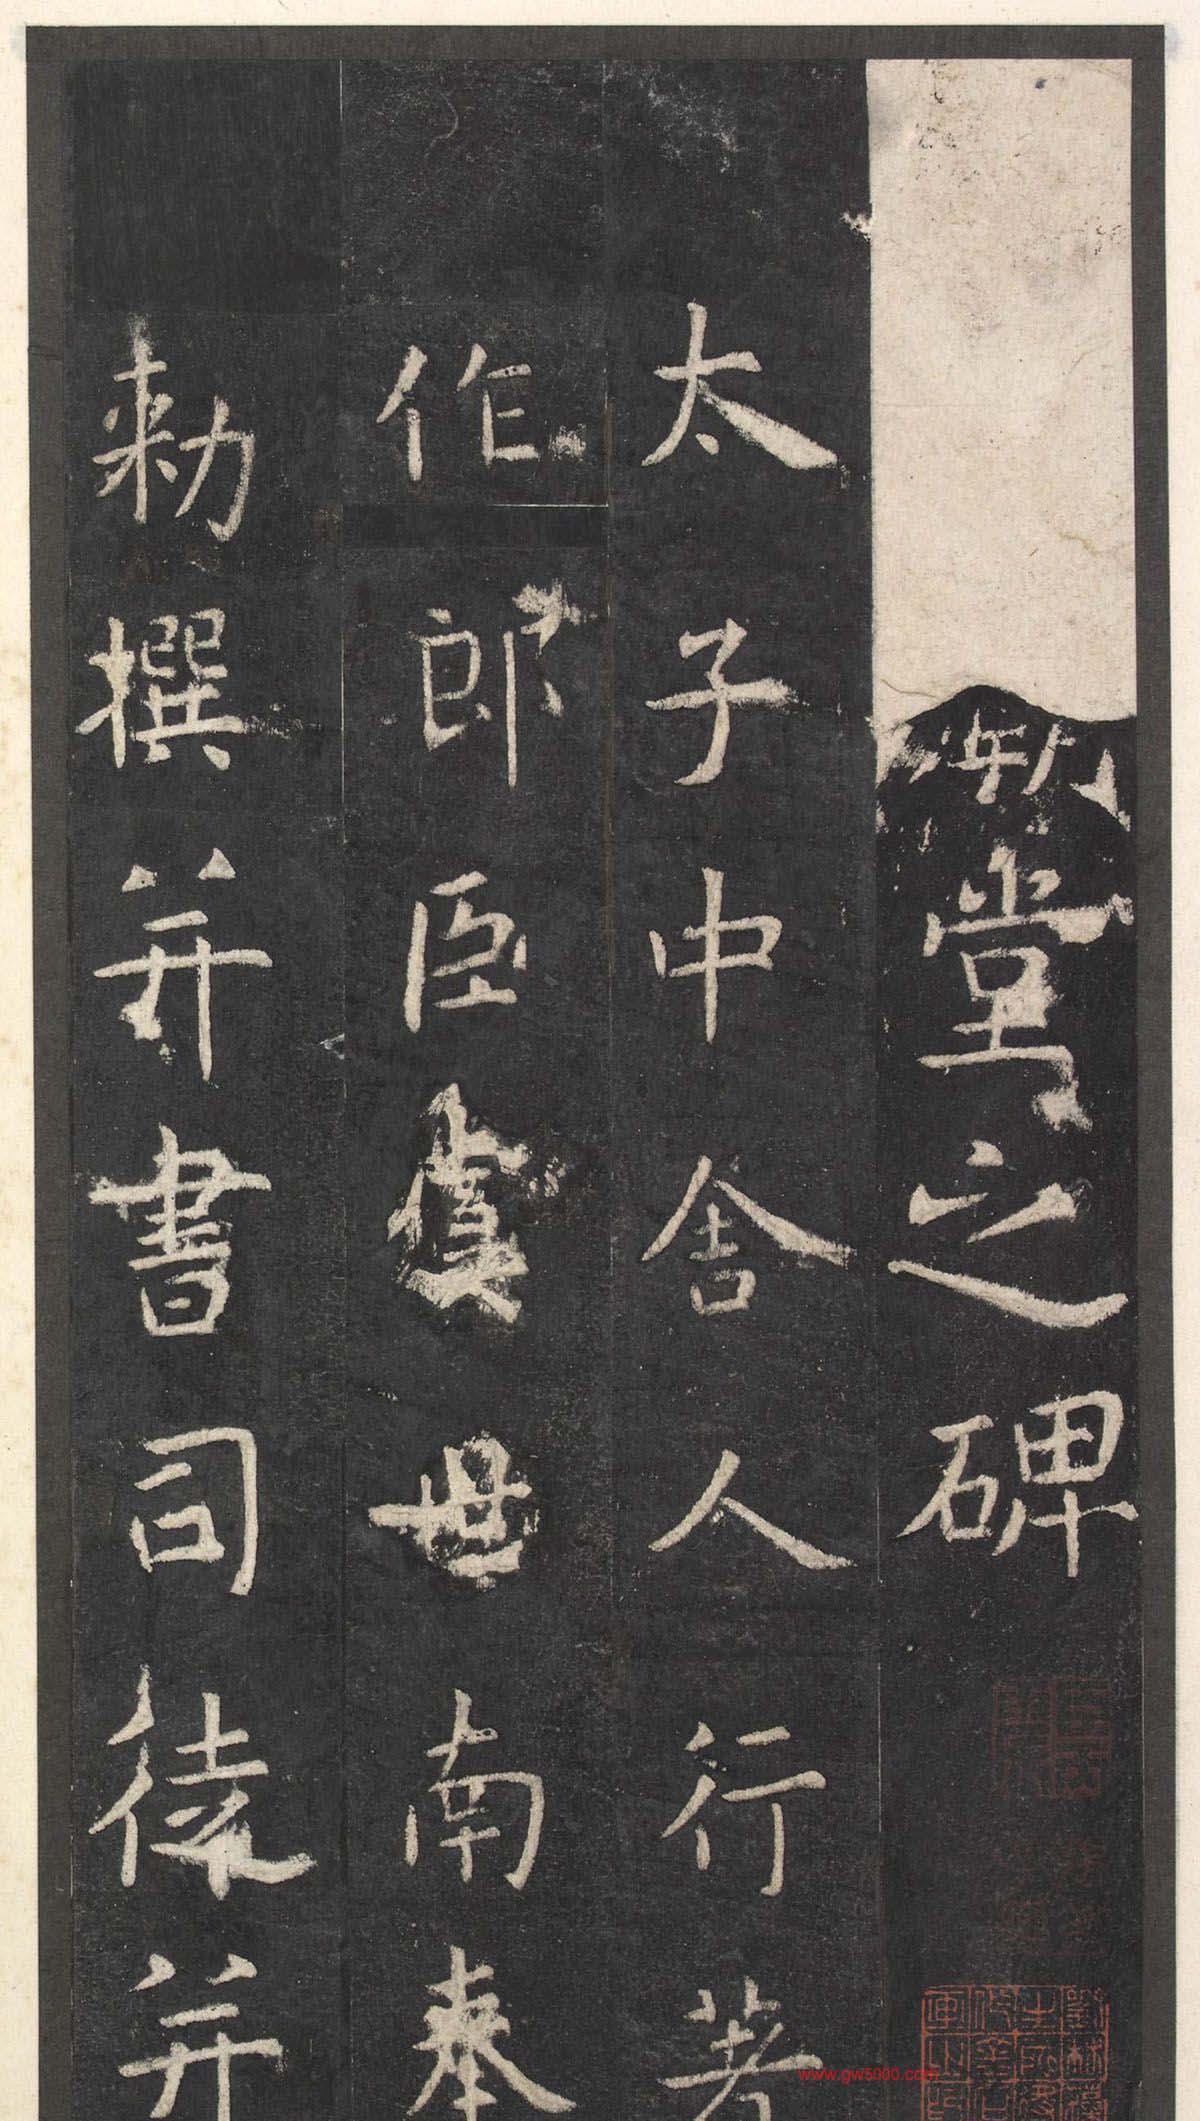 堂之碑
太子中舍人行著
作郎臣虞世南奉
勅撰并書司徒并
www.gw5000.com